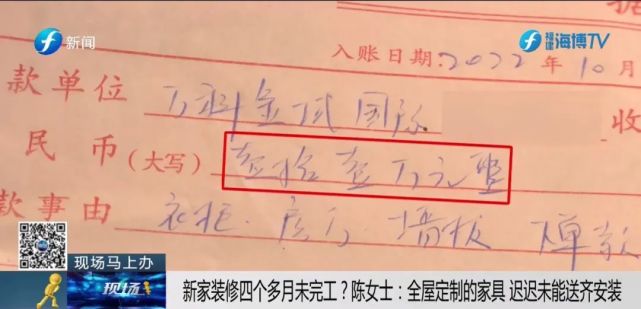 新闻
福建海博TV
入账日期:2022年10月
款单位 万科金域国际 收
民币(大写) 壹拾壹万元整
款事由 衣柜.房门 墙板
现场马上办
现场
新家装修四个多月未完工?陈女士:全屋定制的家具 迟迟未能送齐安装